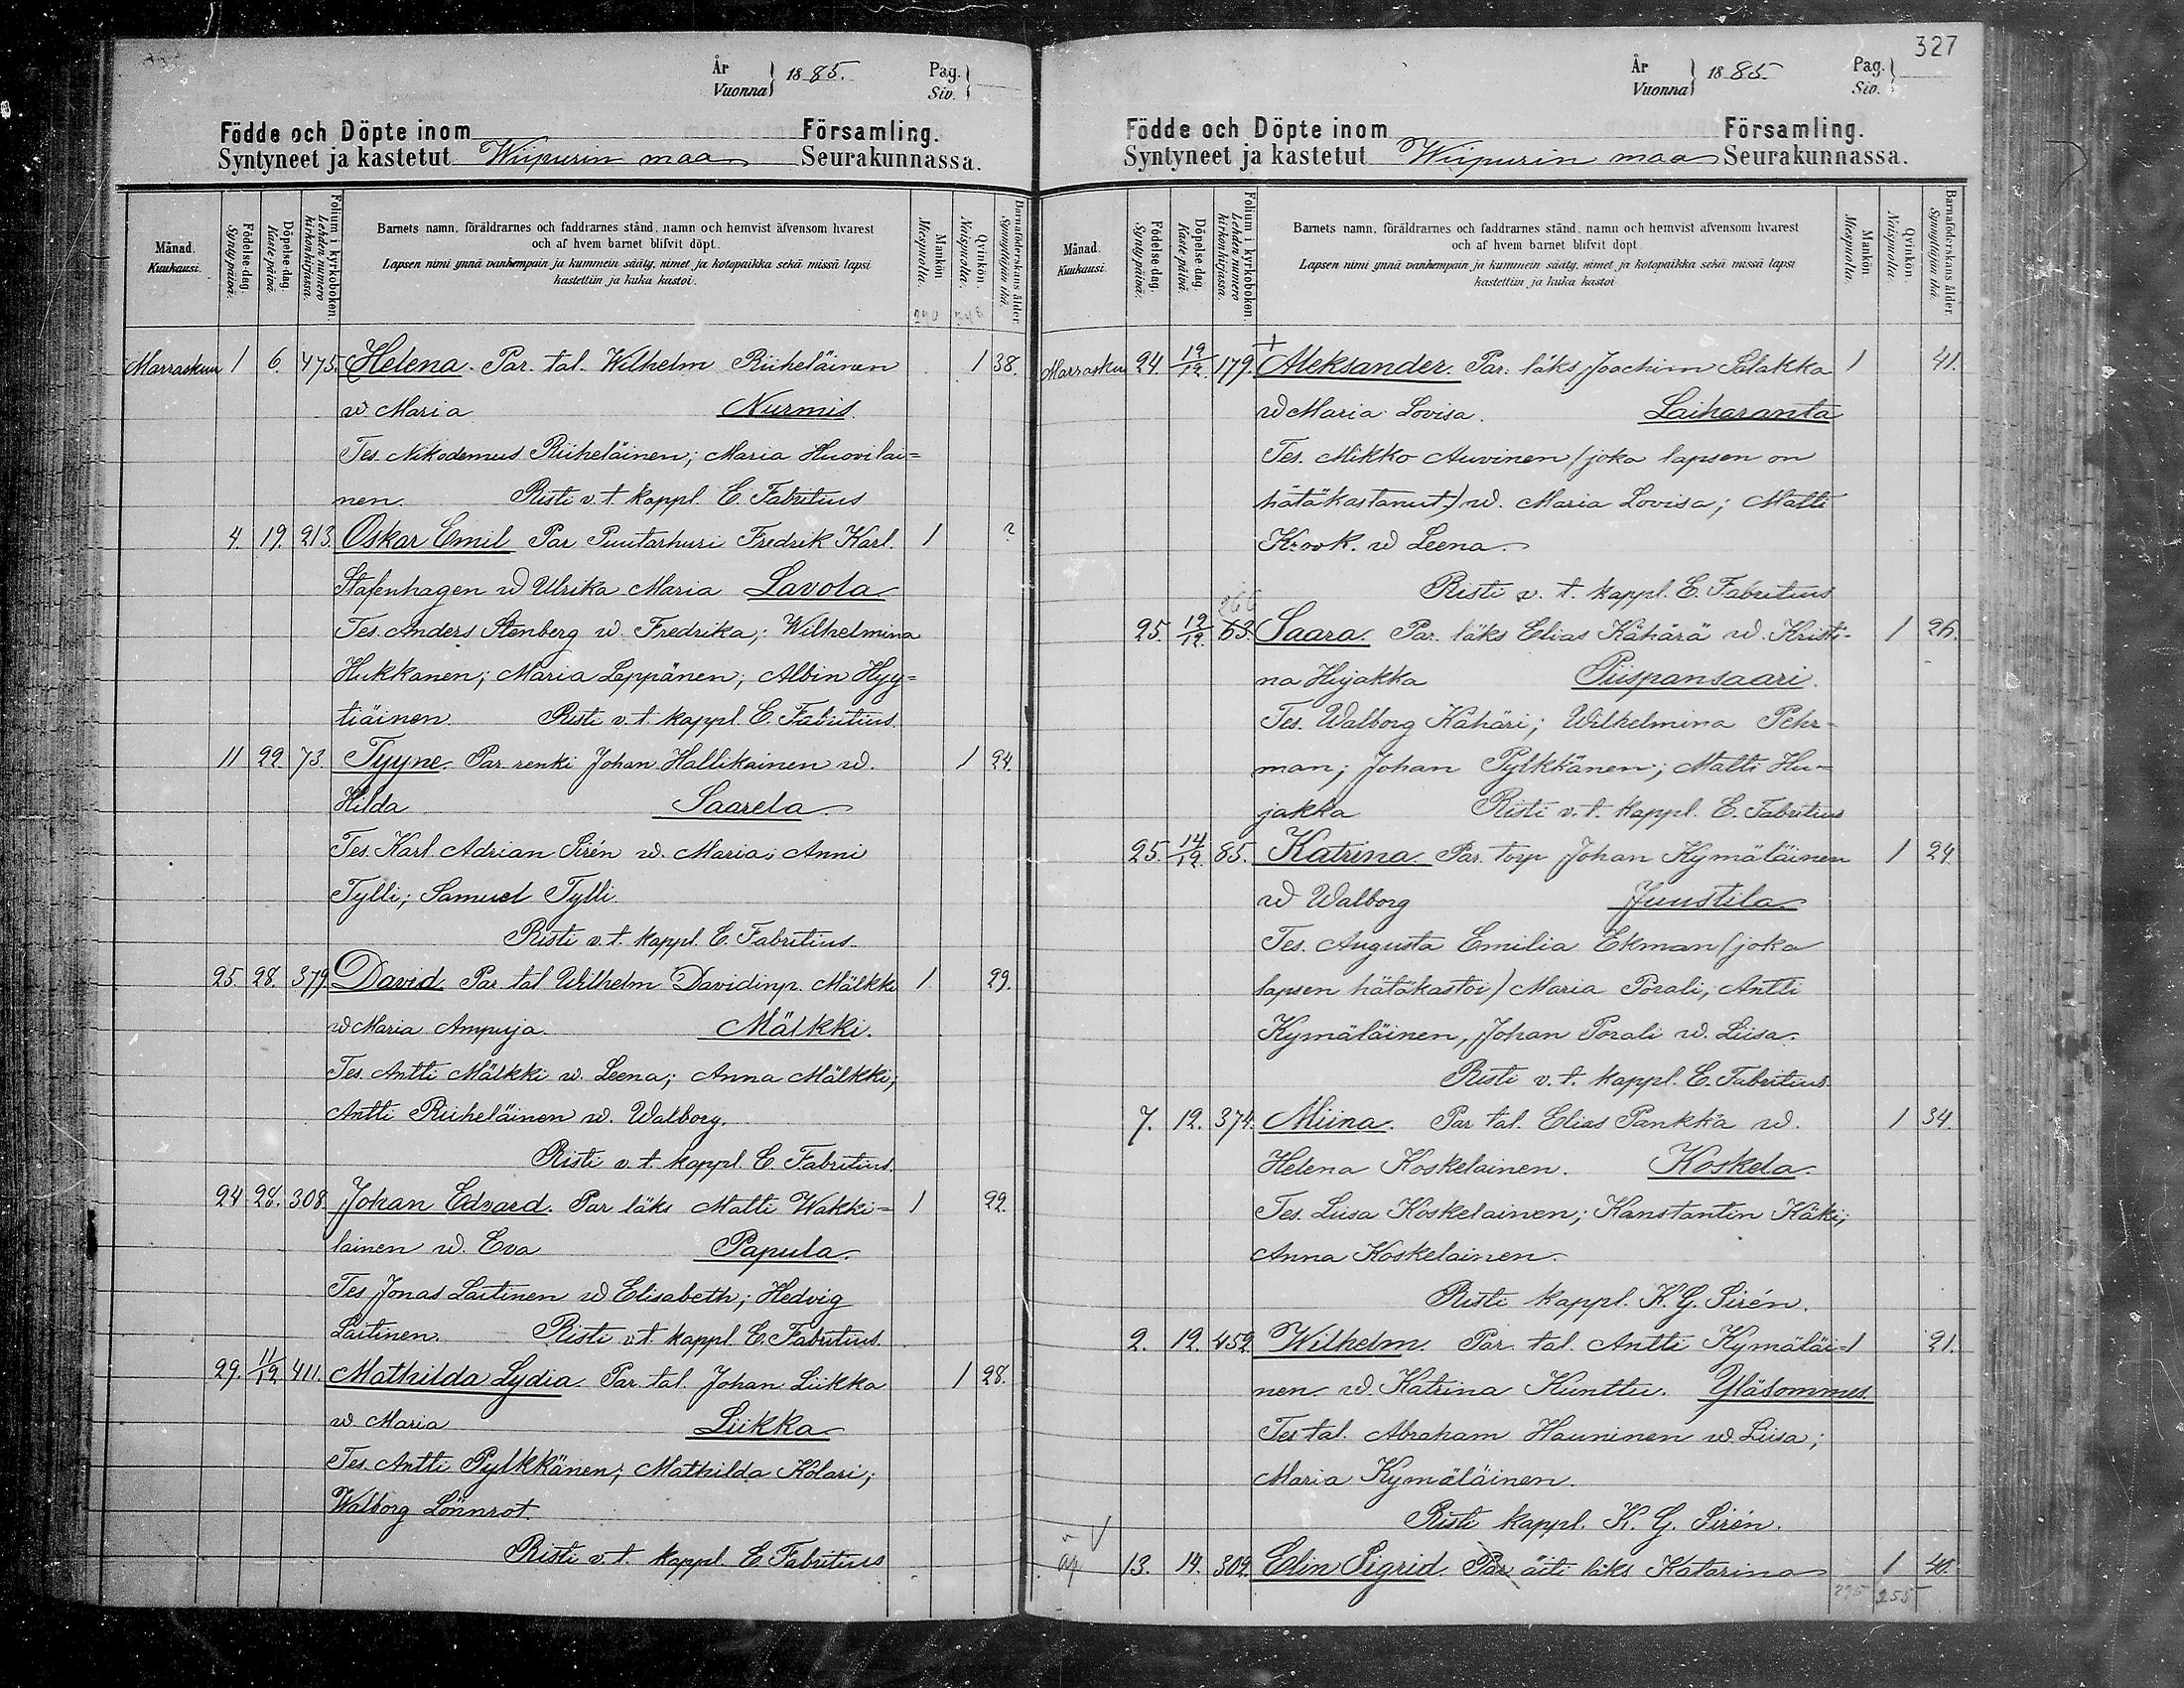 År
Vuonna 1885.
Pag.
Siv.
Födde och Döpte inom Församling.
Syntyneet ja kastetut Wiipurin maa Seurakunnassa.
Månad. Kuukausi.
Födelse-dag. Synty päivä.
Döpelse-dag. Kaste päivä.
Folium i kyrkoboken. Lehden numero kirkonkirjassa.
Barnets namn, föräldrarnes och faddrarnes stånd, namn och hemvist äfvensom hvarest
och af hvem barnet blifvit döpt.
Lapsen nimi ynnä vanhempain ja kummein sääty, nimet ja kotopaikka sekä missä lapsi
kastettiin ja kuka kastoi.
Mankön. Miespuolta.
Qvinkön. Naispuolta.
Barnaföderskans ålder. Synnyttäjän ikä.
Marraskuu 1 6. 475. Helena. Par. tal. Wilhelm Riiheläinen 1 38.
w. Maria Nurmis.
Tes. Nikodemus Riiheläinen; Maria Huovilai=
nen. Risti v. t. kappl. E. Fabritius
4. 19. 213. Oskar Emil Par Puutarhuri Fredrik Karl. 1 ?
Stafenhagen w Ulrika Maria Lavola
Tes. Anders Stenberg w. Fredrika; Wilhelmina
Hukkanen; Maria Leppänen; Albin Hyy=
tiäinen. Risti v. t. kappl. E. Fabritius.
11 22. 73. Tyyne. Par. renki Johan Hallikainen w. 1 24.
Hilda Saarela.
Tes. Karl Adrian Sirén w. Maria; Anni
Tylli; Samuel Tylli.
Risti v. t. kappl. E. Fabritius.
25. 28. 379. David. Par tal Wilhelm Davidinp. Mälkki 1 29.
w Maria Ampuja. Mälkki.
Tes. Antti Mälkki w. Leena; Anna Mälkki;
Antti Riiheläinen w. Walborg.
Risti v. t. kappl. E. Fabritius.
24 28. 308. Johan Edvard. Par läks Matti Wakki= 1 22.
lainen w. Eva Papula.
Tes Jonas Laitinen w Elisabeth; Hedvig
Laitinen. Risti v. t. kappl. E. Fabritius.
29. 11/12 411. Mathilda Lydia Par. tal. Johan Liikka 1 28.
w. Maria Liikka
Tes. Antti Pylkkänen; Mathilda Kolari;
Walborg Lönnrot.
Risti v. t. kappl. E. Fabritius
327
År
Vuonna 1885.
Pag.
Siv.
Födde och Döpte inom Församling.
Syntyneet ja kastetut Wiipurin maa Seurakunnassa.
Månad. Kuukausi.
Födelse-dag. Synty päivä.
Döpelse-dag. Kaste päivä.
Folium i kyrkoboken. Lehden numero kirkonkirjassa.
Barnets namn, föräldrarnes och faddrarnes stånd, namn och hemvist äfvensom hvarest
och af hvem barnet blifvit döpt.
Lapsen nimi ynnä vanhempain ja kummein sääty, nimet ja kotopaikka sekä missä lapsi
kastettiin ja kuka kastoi
Mankön. Miespuolta.
Qvinkön. Naispuolta.
Barnaföderskans ålder. Synnyttäjän ikä.
Marrasku 24. 12/12. 179. + Aleksander. Par. läks Joachim Salakka 1 41.
w Maria Lovisa. Laiharanta
Tes. Mikko Auvinen (joka lapsen on
hätäkastanut) w. Maria Lovisa; Matti
Krook. w Leena.
Risti v. t. kappl. E. Fabritius
266
25. 12/12. 63. Saara. Par. läks Elias Kähärä w. Kristi- 1 26.
na Hujakka Piispansaari.
Tes. Walborg Kähäri; Wilhelmina Pehr-
man; Johan Pylkkänen; Matti Hu-
jakka Risti v. t. kappl. E. Fabritius
25. 14/12. 85. Katrina Par. torp Johan Kymäläinen 1 24.
w Walborg Juustila
Tes. Augusta Emilia Ekman (joka
lapsen hätäkastoi) Maria Porali; Antti
Kymäläinen, Johan Porali w. Liisa.
Risti v. t. kappl. E. Fabritius.
7. 12. 374. Miina. Par tal. Elias Pankka w. 1 34.
Helena Koskelainen. Koskela.
Tes. Liisa Koskelainen; Kanstantin Käki;
Anna Koskelainen.
Risti kappl. K. G. Sirén.
2. 12. 452. Wilhelm. Par. tal. Antti Kymäläi- 1 21.
nen w. Katrina Kunttu. Yläsommes.
Tes tal. Abraham Hauninen w. Liisa;
Maria Kymäläinen.
Risti kappl. K. G. Sirén.
äp 13. 14. 302. Elin Sigrid. Par äiti läks Katarina 1 40.
295 255